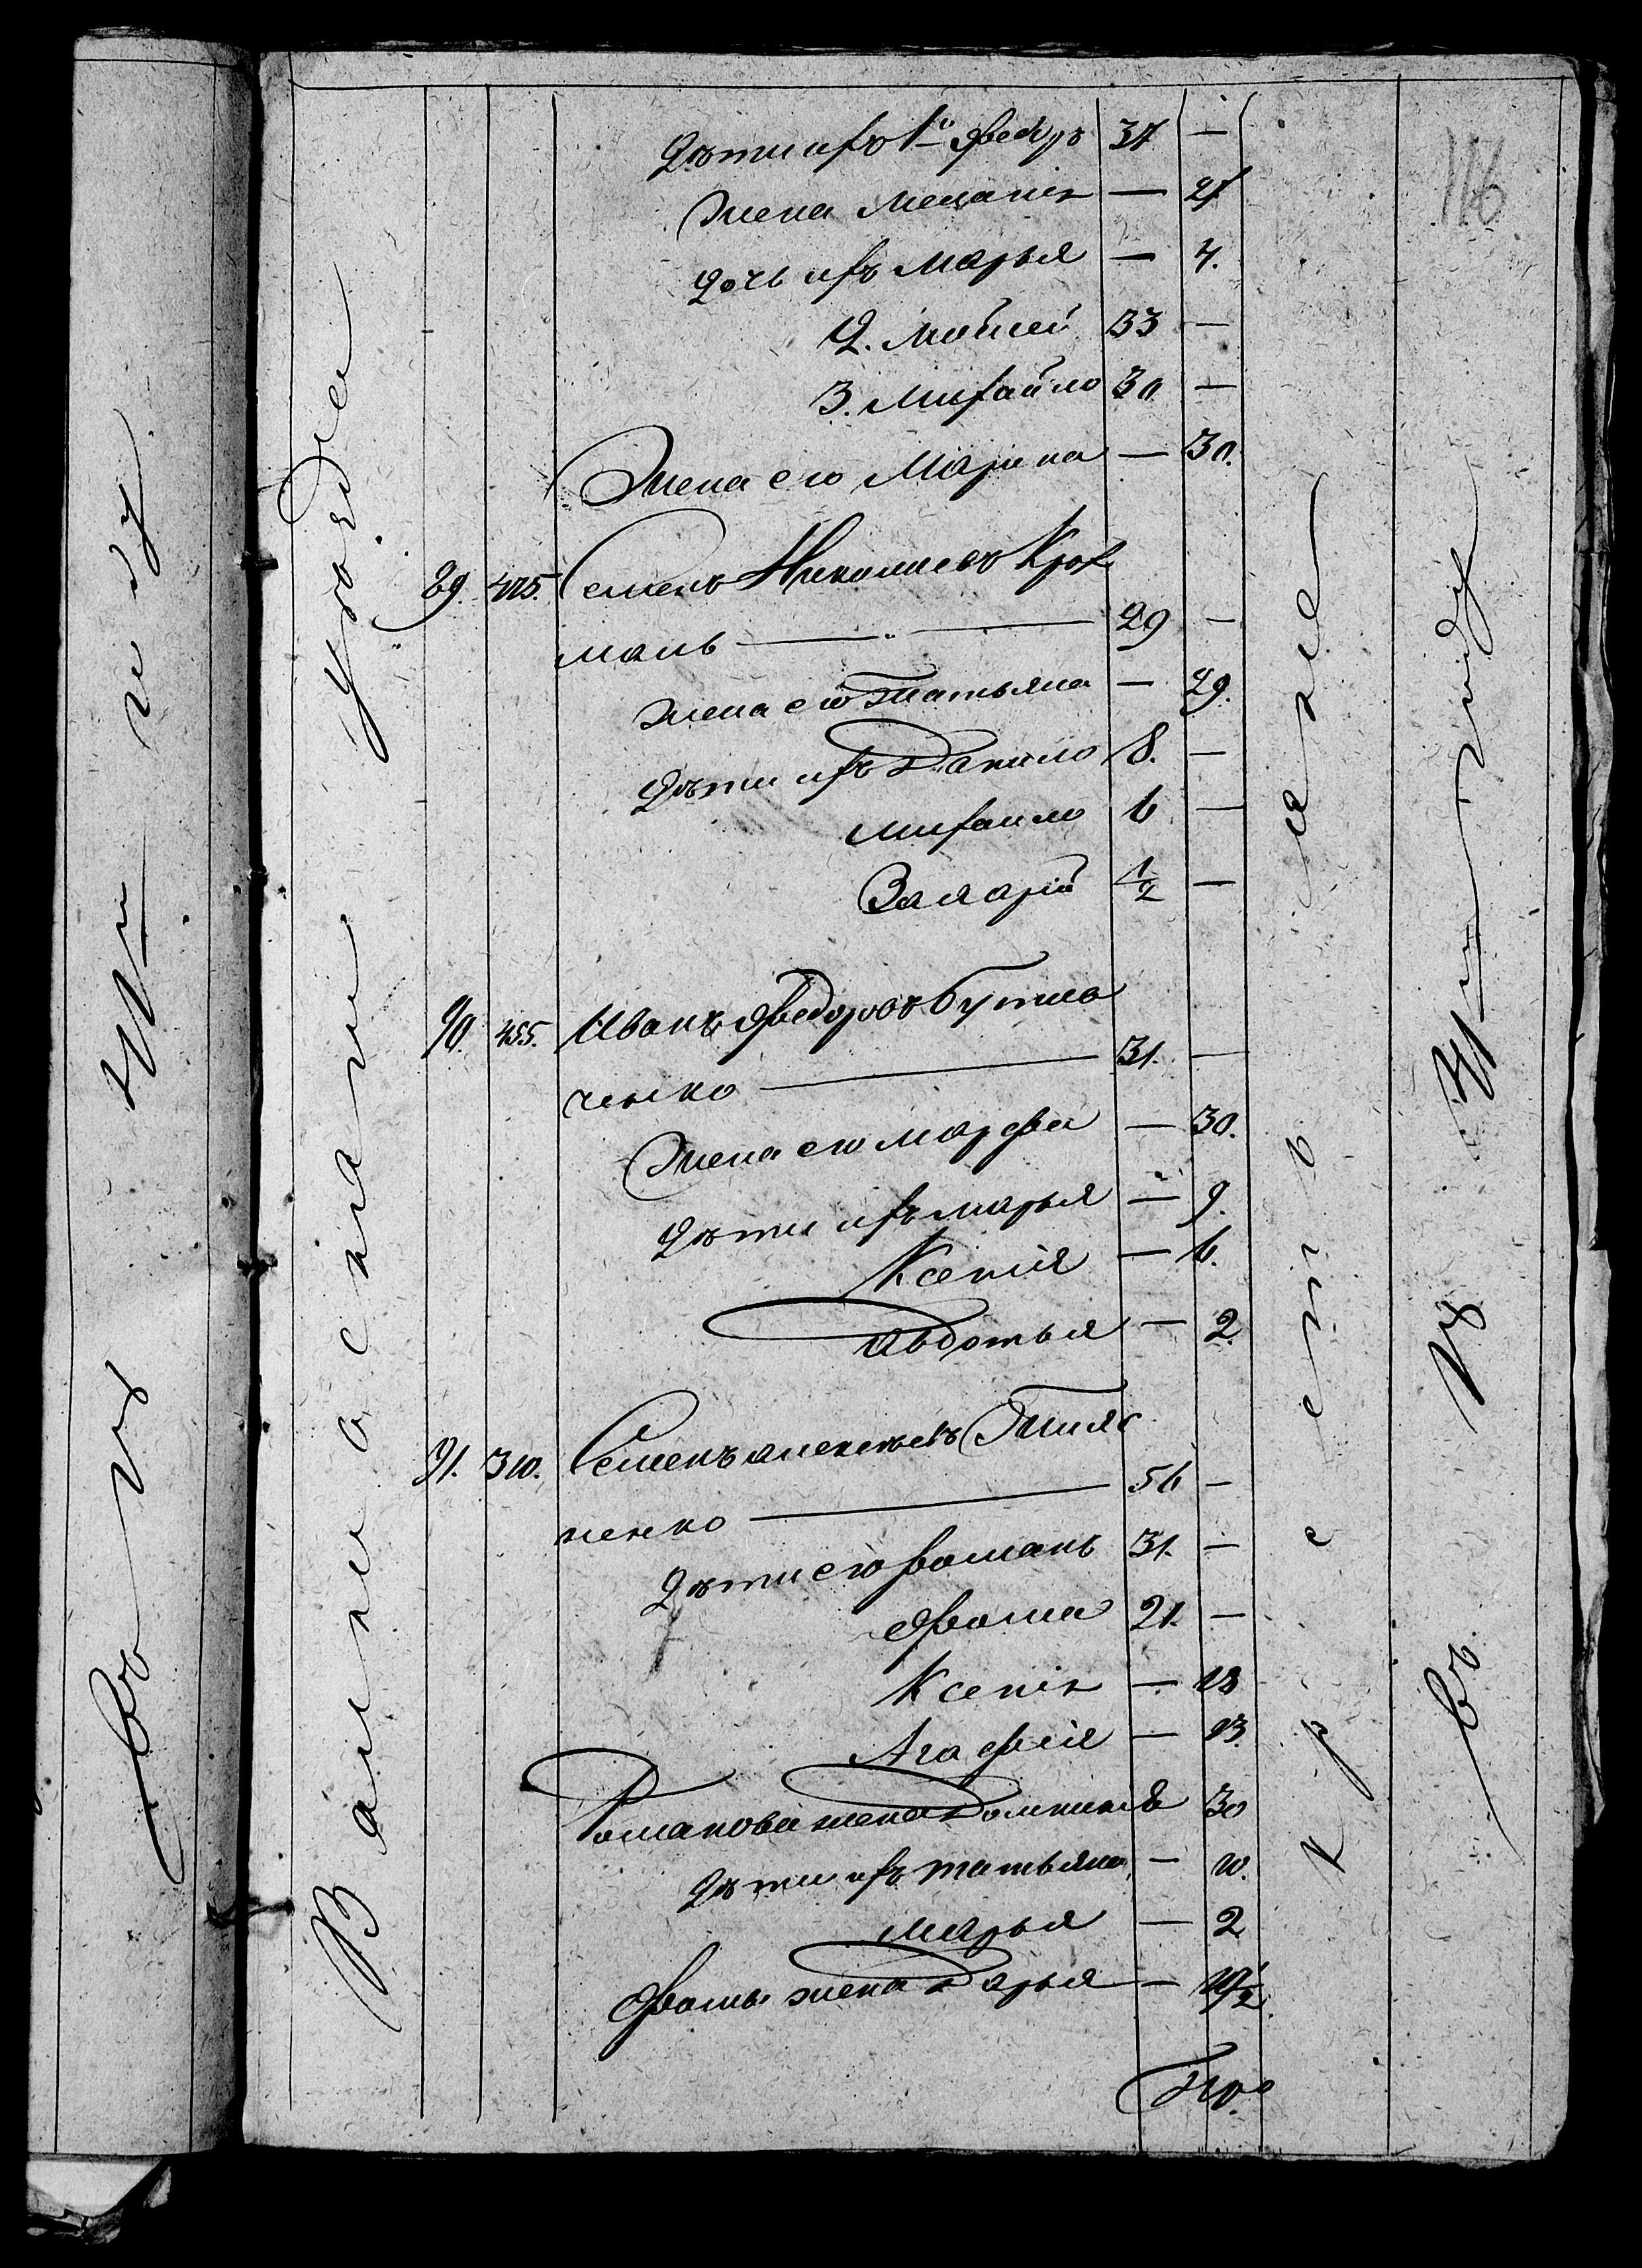 116
Дѣти ихъ 1й Федоръ 37 —
жена Меланія — 27
дочь ихъ Марья — 4.
2. Мойсей 33 —
3. Михайло 30 —
Жена его Марина — 30.
89. 425. Семенъ Николаевъ Крох
маль — 29 —
жена его Татьяна — 29.
Дѣти ихъ Данило 8. —
Михайло 6 —
Валарій 1/2 —
90. 455. Иванъ Федоровъ Бутил
ченко — 31. —
Жена его Марфа — 30.
Дѣти ихъ Марья — 9.
Ксенія — 6.
Авдотья — 2.
91. 310. Семенъ Алексѣевъ
ненко — 56 —
Дѣти его Романъ 31. —
Фома 21. —
Ксенія — 18
Агафія — 13.
Романова жена Домникія 30
Дѣти ихъ Татьяна — 10.
Марья — 2
Фомы жена Дарья — 19 1/2
Валкоскаго уѣзда
крестьяне
въ